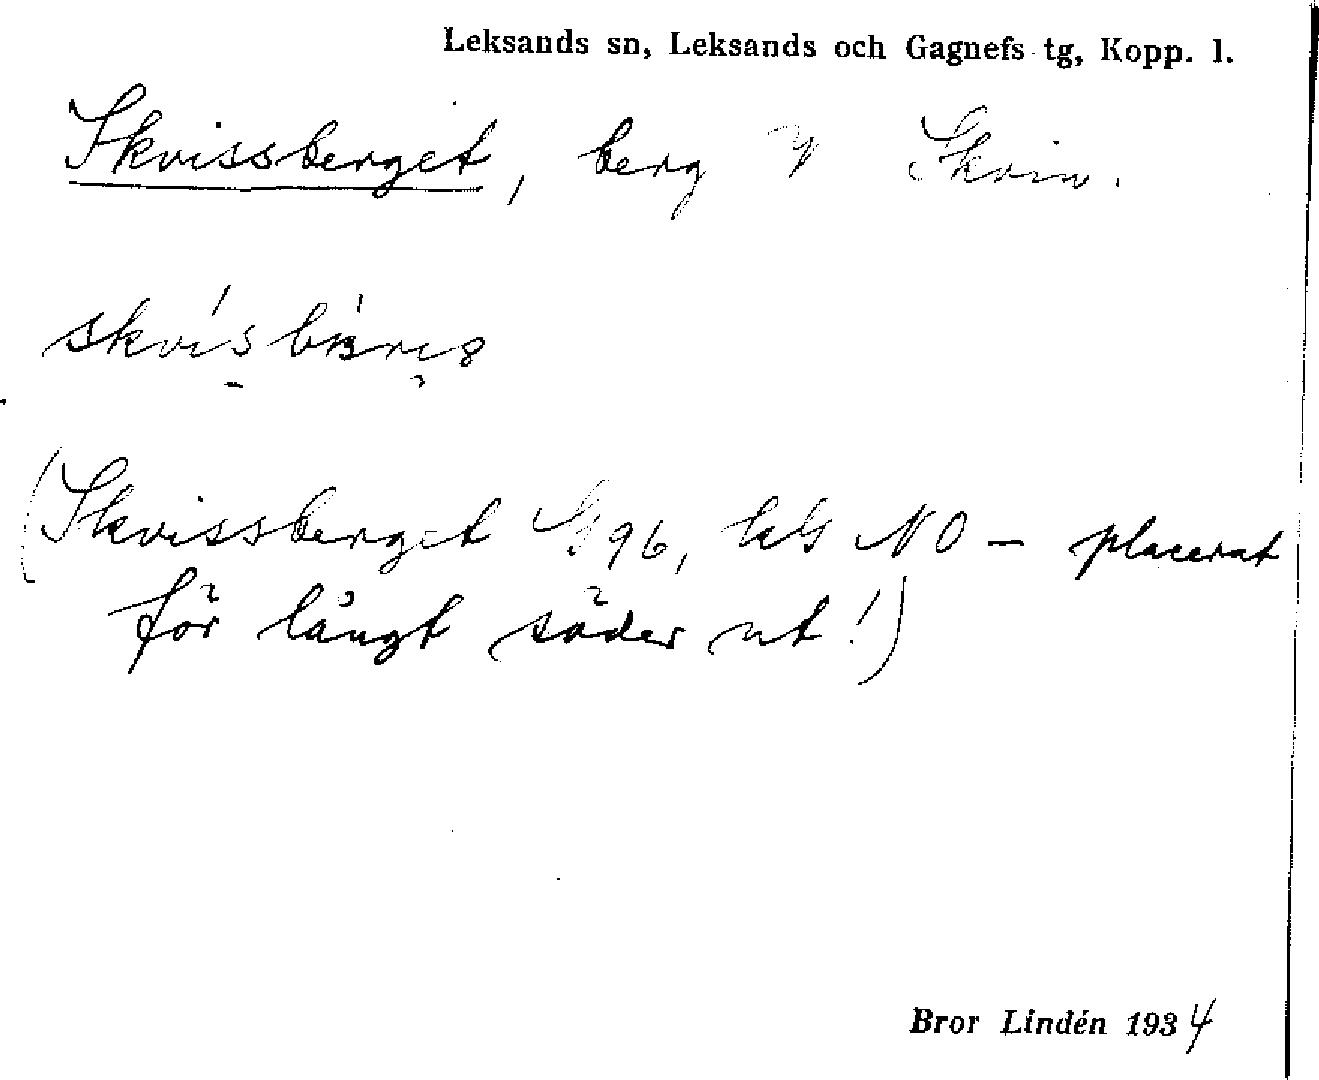 Leksands sn, Leksands och Gagnefs tg, Kopp. l.
Skvissberget, berg V Skvin.
(Skvissberget G 96, bl NO – placerat
för långt söder ut!)
Bror Lindén 1934